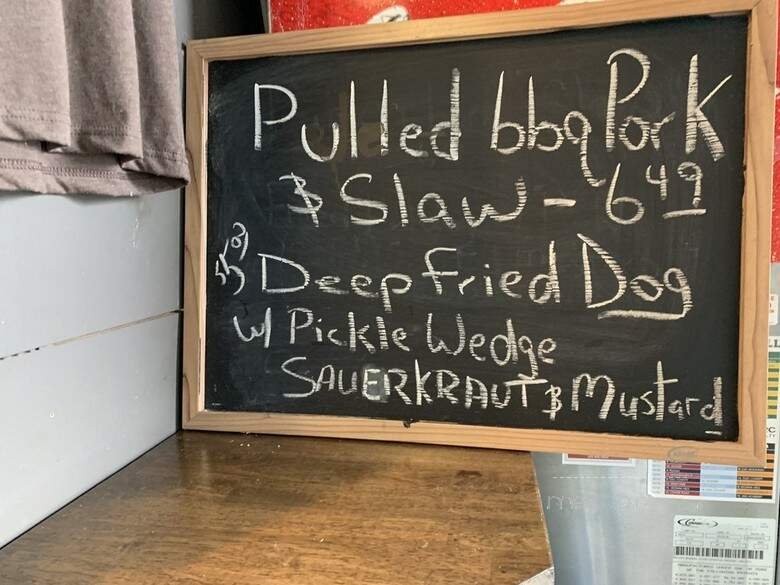 Pulled bbq Pork
& Slaw - 6 49
Deep fried Dog
w/ Pickle Wedge
SAUERKRAUT & Mustard